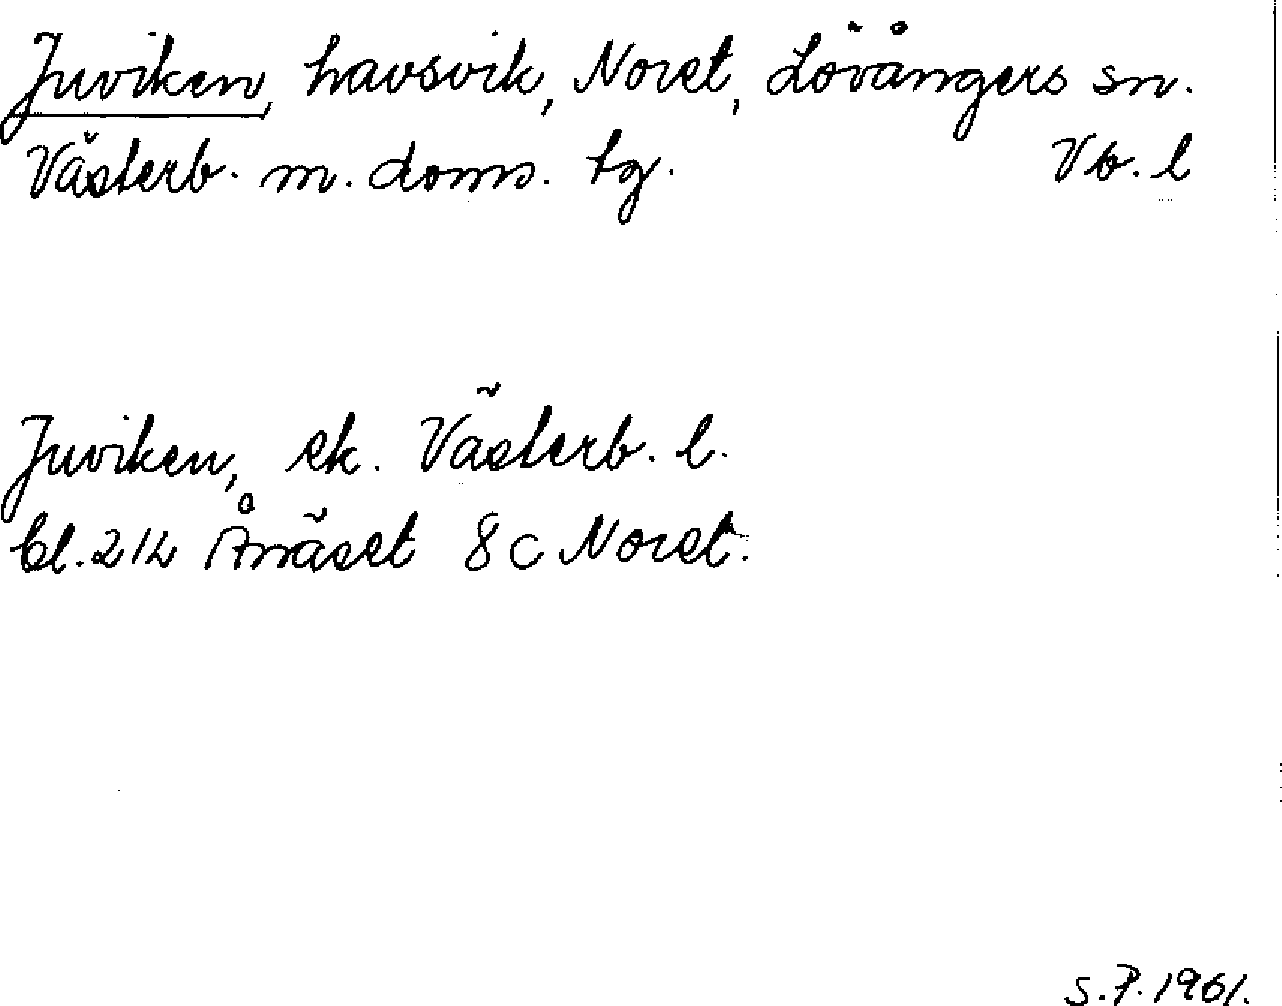 Juviken, havsvik, Noret, Lövångers sn.
Västerb. m. doms. tg. Vb. l
Juviken, ek. Västerb. l.
bl. 21L Ånäset 8 c Noret.
S.P. 1961.